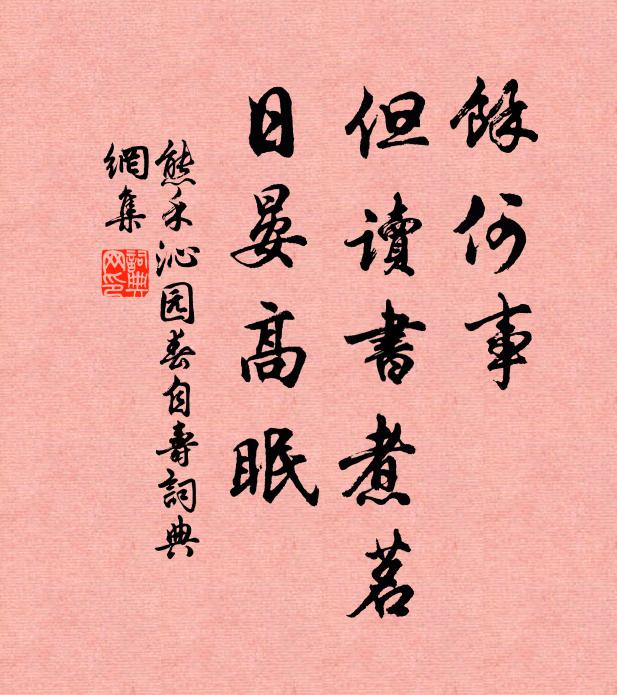 餘何事
但讀書煮茗
日晏高眠
熊禾沁园春自壽詞典
網集
詞典網印